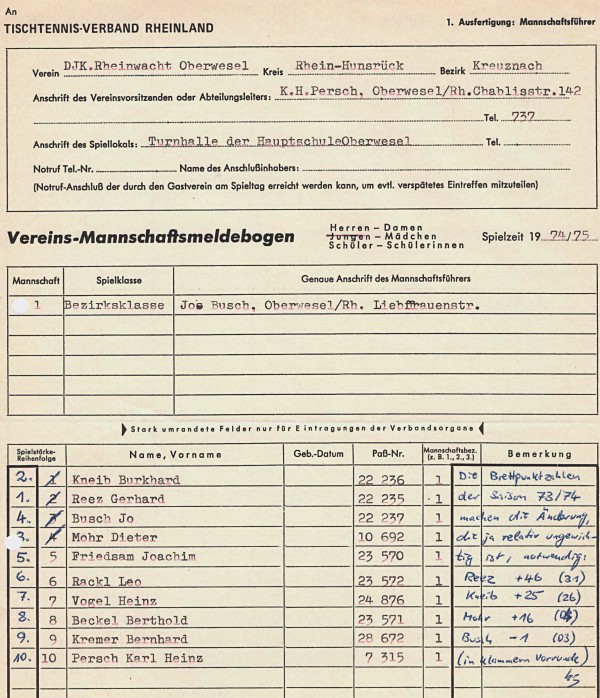 An
TISCHTENNIS-VERBAND RHEINLAND
1. Ausfertigung: Mannschaftsführer
Verein DJK.Rheinwacht Oberwesel Kreis Rhein-Hunsrück Bezirk Kreuznach
Anschrift des Vereinsvorsitzenden oder Abteilungsleiters: K.H.Persch, Oberwesel/Rh.Chablisstr.142
Tel. 737
Anschrift des Spiellokals: Turnhalle der HauptschuleOberwesel Tel.
Notruf Tel.-Nr. Name des Anschlußinhabers:
(Notruf-Anschluß der durch den Gastverein am Spieltag erreicht werden kann, um evtl. verspätetes Eintreffen mitzuteilen)
Vereins-Mannschaftsmeldebogen
Herren – Damen
Jungen – Mädchen
Schüler – Schülerinnen
Spielzeit 19 74/75
Mannschaft Spielklasse Genaue Anschrift des Mannschaftsführers
1 Bezirksklasse Jos Busch, Oberwesel/Rh. Liebfrauenstr.
Stark umrandete Felder nur für Eintragungen der Verbandsorgane
Spielstärke-Reihenfolge Name, Vorname Geb.-Datum Paß-Nr. Mannschaftsbez. (z. B. 1., 2., 3.) Bemerkung
2. 1 Kneib Burkhard 22 236 1 Die Brettpunktzahlen
1. 2 Reez Gerhard 22 235 1 der Saison 73/74
4. 3 Busch Jo 22 237 1 machen die Änderung,
3. 4 Mohr Dieter 10 692 1 die ja relativ ungewich-
5. 5 Friedsam Joachim 23 570 1 tig ist, notwendig:
6. 6 Rackl Leo 23 572 1 Reez +46 (31)
7. 7 Vogel Heinz 24 876 1 Kneib +25 (26)
8. 8 Beckel Berthold 23 571 1 Mohr +16
9. 9 Kremer Bernhard 28 672 1 Busch -1 (03)
10. 10 Persch Karl Heinz 7 315 1 (in Klammern Vorrunde)